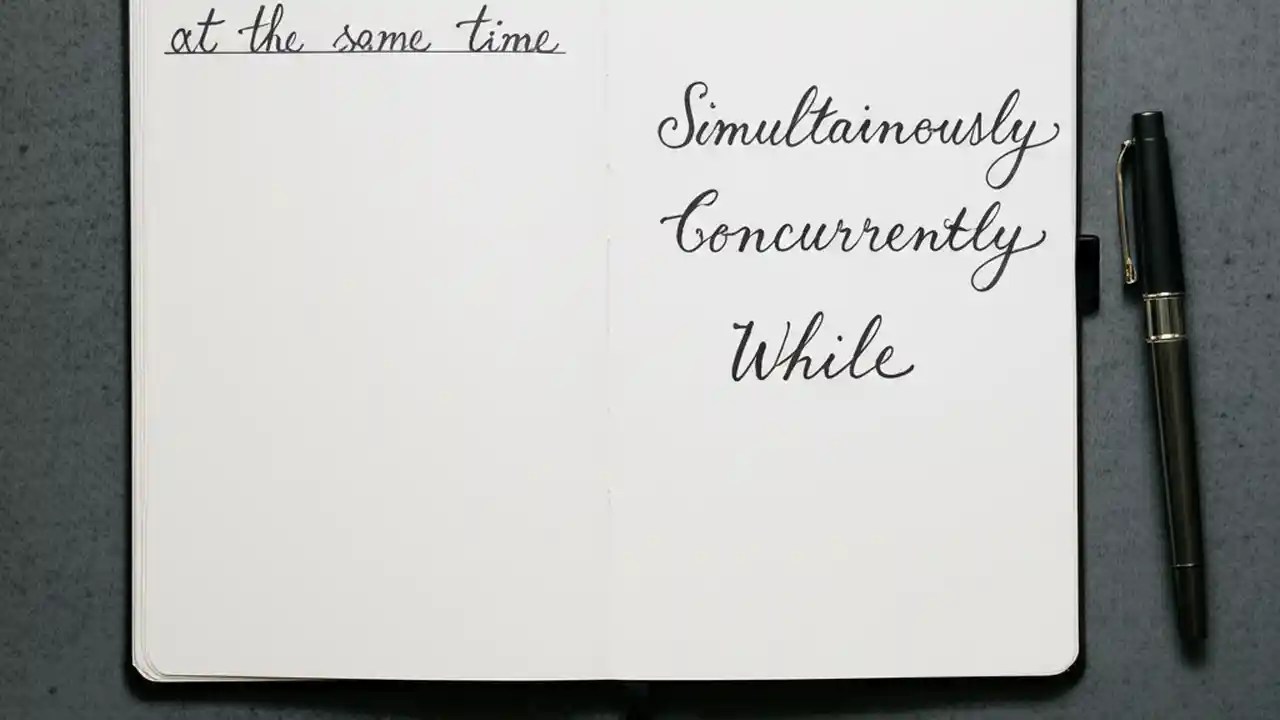 at the same time
Simultainously
Concurrently
While